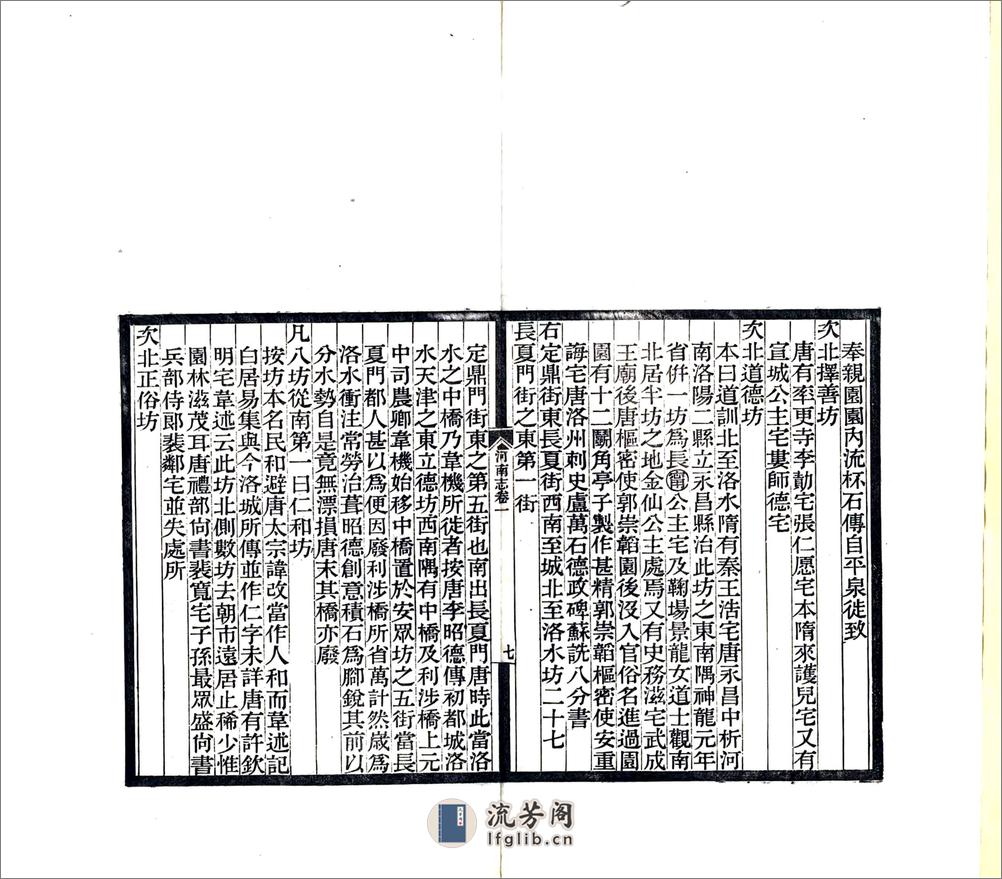 奉親園園內流杯石傳自平泉徙致
次北擇善坊
唐有率更寺李勣宅張仁愿宅本隋來護兒宅又有
宣城公主宅婁師德宅
次北道德坊
本曰道訓北至洛水隋有秦王浩宅唐永昌中析河
南洛陽二縣立永昌縣治此坊之東南隅神龍元年
省倂一坊爲長寗公主宅及鞠場景龍女道士觀南
北居半坊之地金仙公主處焉又有史務滋宅武成
王廟後唐樞密使郭崇韜園後沒入官俗名進過園
園有十二關角亭子製作甚精郭崇韜樞密使安重
誨宅唐洛州刺史盧萬石德政碑蘇詵八分書
右定鼎街東長夏街西南至城北至洛水坊二十七
長夏門街之東第一街
河南志卷一
七
定鼎門街東之第五街也南出長夏門唐時此當洛
水之中橋乃韋機所徙者按唐李昭德傳初都城洛
水天津之東立德坊西南隅有中橋及利涉橋上元
中司農卿韋機始移中橋置於安眾坊之五街當長
夏門都人甚以爲便因廢利涉橋所省萬計然歲爲
洛水衝注常勞治葺昭德創意積石爲腳銳其前以
分水勢自是竟無漂損唐末其橋亦廢
凡八坊從南第一曰仁和坊
按坊本名民和避唐太宗諱改當作人和而韋述記
白居易集與今洛城所傳並作仁字未詳唐有許欽
明宅韋述云此坊北側數坊去朝市遠居止稀少惟
園林滋茂耳唐禮部尚書裴寬宅子孫最眾盛尚書
兵部侍郎裴鄰宅並失處所
次北正俗坊
流芳阁
lfglib.cn